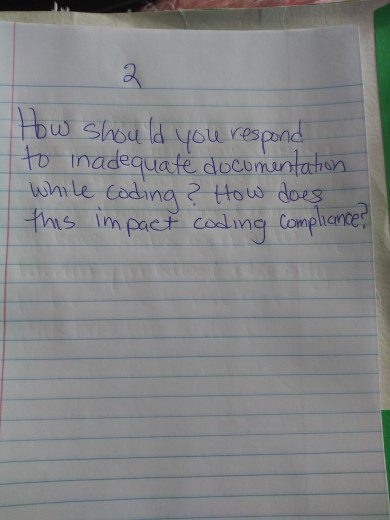 2
How should you respond
to inadequate documentation
while coding? How does
this impact coding compliance?